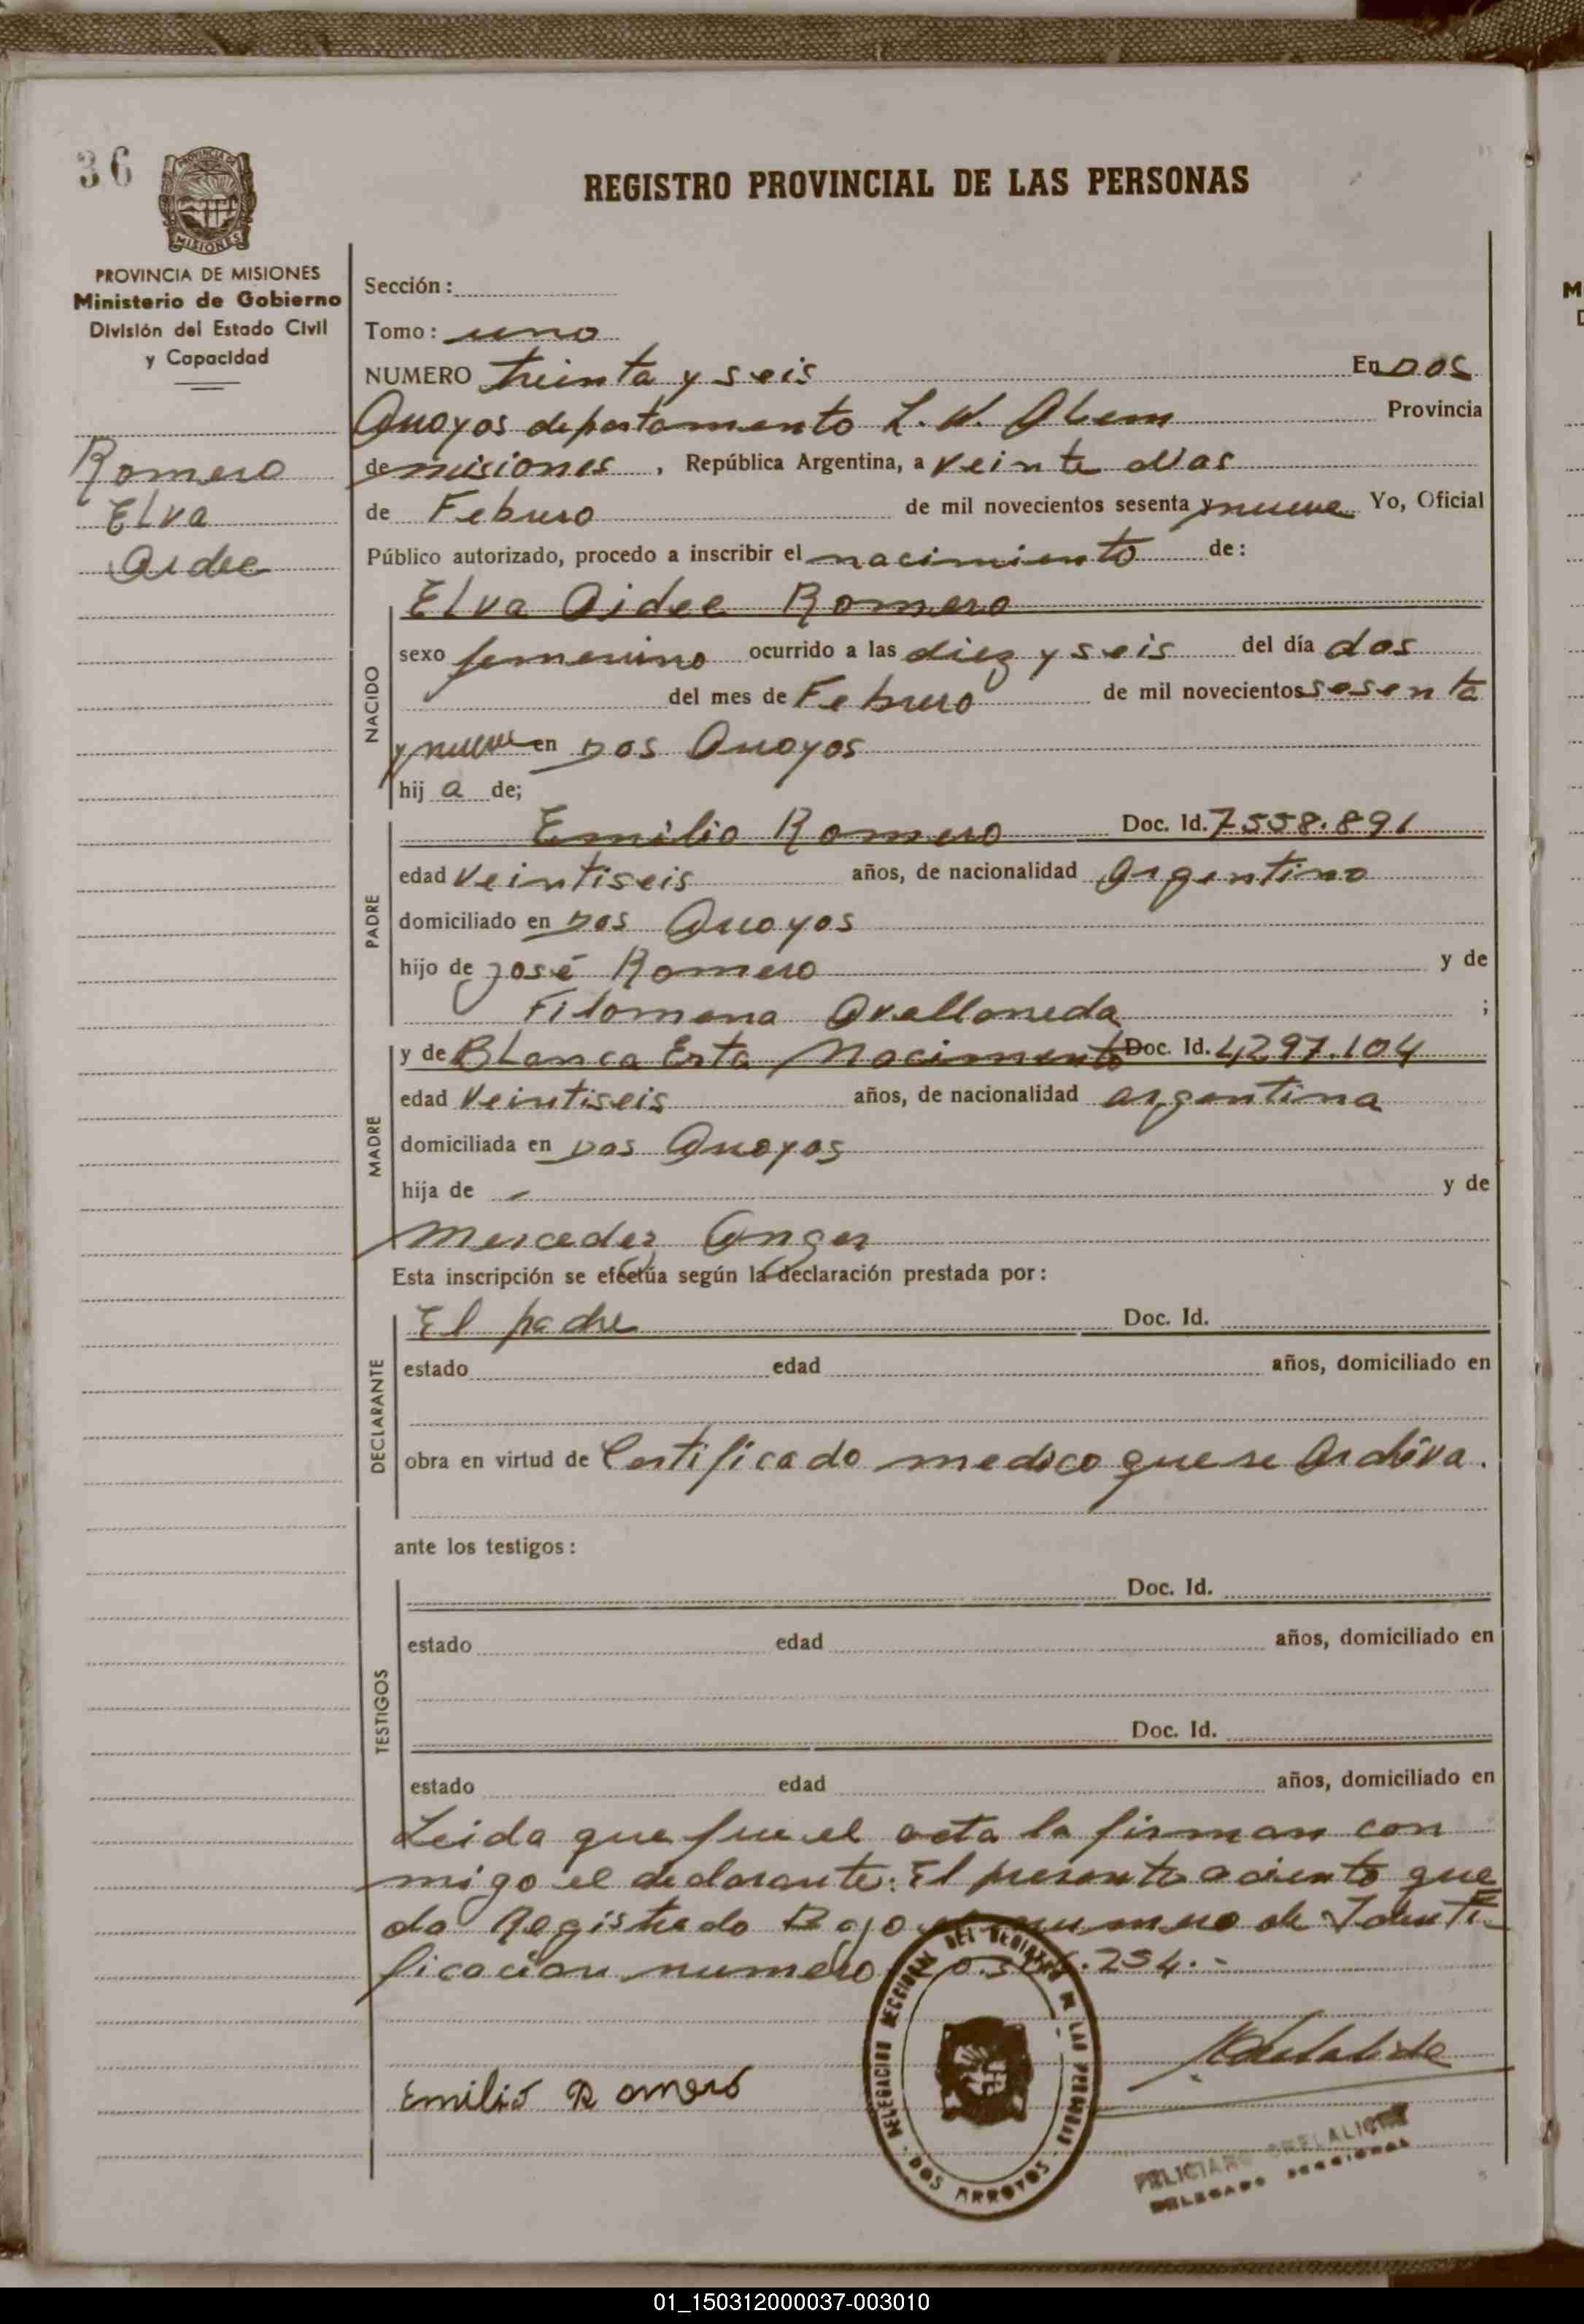 36
PROVINCIA DE
MISIONES
REGISTRO PROVINCIAL DE LAS PERSONAS
PROVINCIA DE MISIONES
Ministerio de Gobierno
División del Estado Civil
y Capacidad
Romero
Elva
Aidee
Sección:
Tomo: uno
NUMERO treinta y seis En Dos
Arroyos departamento L. N. Alem Provincia
de misiones, República Argentina, a veinte dias
de Febrero de mil novecientos sesenta y nueve Yo, Oficial
Público autorizado, procedo a inscribir el nacimiento de:
NACIDO
Elva Aidee Romero
sexo femenino ocurrido a las diez y seis del día dos
del mes de Febrero de mil novecientos sesenta
y nueve en Dos Arroyos
hij a de;
PADRE
Emilio Romero Doc. Id. 7558.891
edad veintiseis años, de nacionalidad Argentino
domiciliado en Dos Arroyos
hijo de José Romero y de
Filomena Avellaneda ;
MADRE
y de Blanca Esta Nacimento Doc. Id. 4297.104
edad Veintiseis años, de nacionalidad argentina
domiciliada en Dos Arroyos
hija de - y de
Mercedes
Esta inscripción se efectúa según la declaración prestada por:
DECLARANTE
El padre Doc. Id.
estado edad años, domiciliado en
obra en virtud de Certificado medico que se Archiva.
ante los testigos:
TESTIGOS
Doc. Id.
estado edad años, domiciliado en
Doc. Id.
estado edad años, domiciliado en
Leida que fue el acta la firman con
migo el declarante. El presente aciento que
da Registrado Bajo el numero de Identi
ficacion numero 234.-
Emilio Romero
DELEGACION SECCIONAL DEL REGISTRO DE LAS PERSONAS
DOS ARROYOS
FELICIANO
DELEGADO SECCIONAL
M
01_150312000037-003010